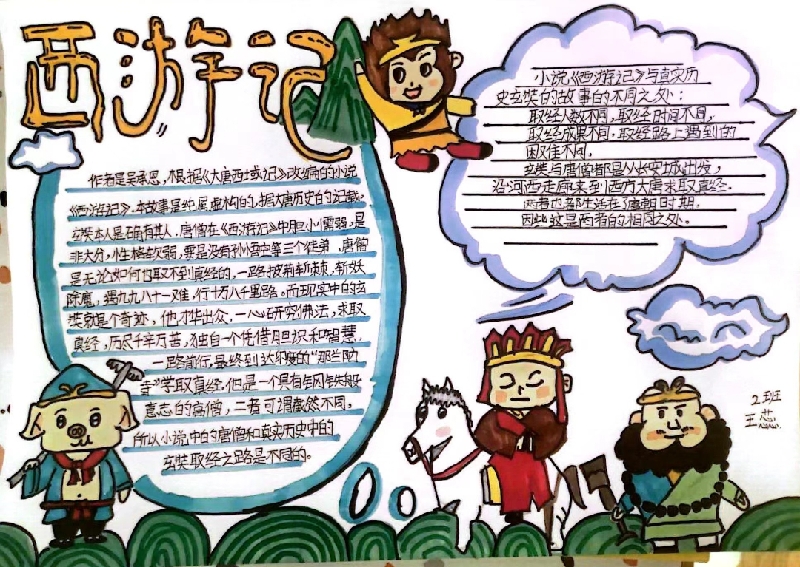 西游记
作者是吴承恩,根据《大唐西域记》改编的小说
《西游记》.本故事是纯属虚构的,据大唐历史的记载
玄奘本人是确有其人.唐僧在《西游记》中胆小懦弱,是
非不分,性格软弱,要是没有孙悟空等三个徒弟,唐僧
是无论如何也取不到真经的,一路披荆斩棘,斩妖
除魔,遇九九八十一难,行十万八千里路。而现实中的玄
奘就是个奇迹,他才华出众.一心研究佛法,求取
真经,历尽千辛万苦,独自一个凭借胆识和智慧.
一路前行,最终到达印度的“那兰陀
寺”学取真经.但是一个具有钢铁般
意志的高僧,二者可谓截然不同,
所以小说中的唐僧和真实历史中的
玄奘取经之路是不同的。
小说《西游记》与真实历
史玄奘的故事的不同之处:
取经人数不同,取经时间不同,
取经成果不同.取经路上遇到的
困难不同,
玄奘与唐僧都是从长安城出发,
沿河西走廊来到西方大唐求取真经.
两者也者生活在了唐朝日时期.
因些这是两者的相同之处。
2班
王